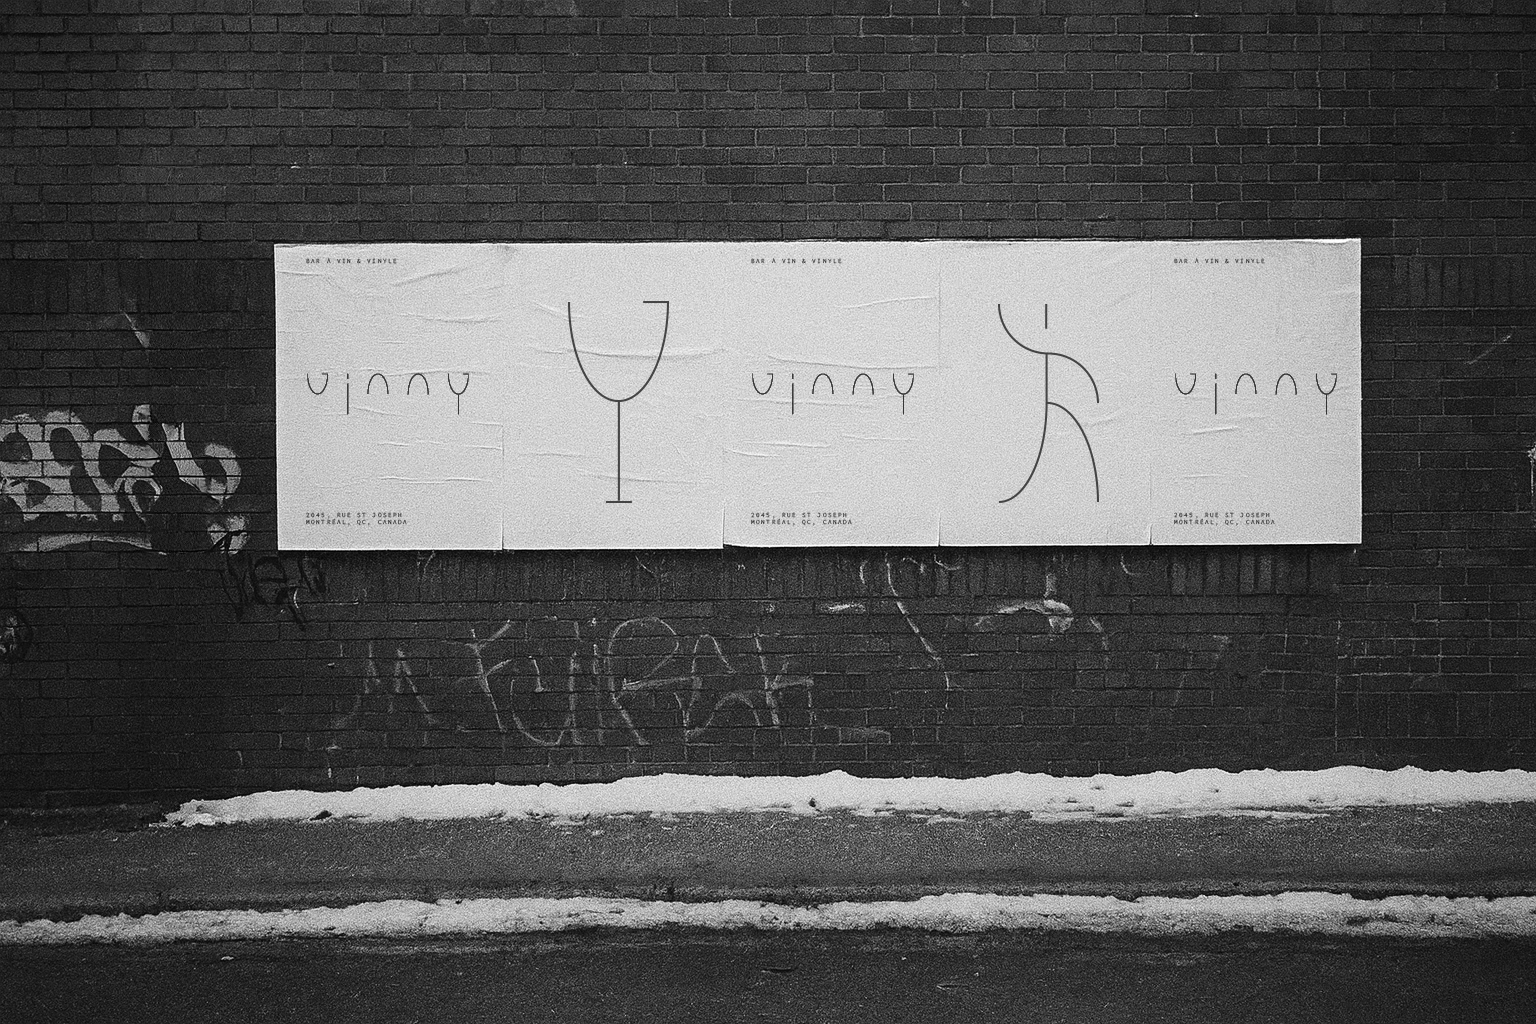 BAR À VIN & VINYLE
vinny
2045, RUE ST JOSEPH
MONTRÉAL, QC, CANADA
BAR À VIN & VINYLE
vinny
2045, RUE ST JOSEPH
MONTRÉAL, QC, CANADA
BAR À VIN & VINYLE
vinny
2045, RUE ST JOSEPH
MONTRÉAL, QC, CANADA